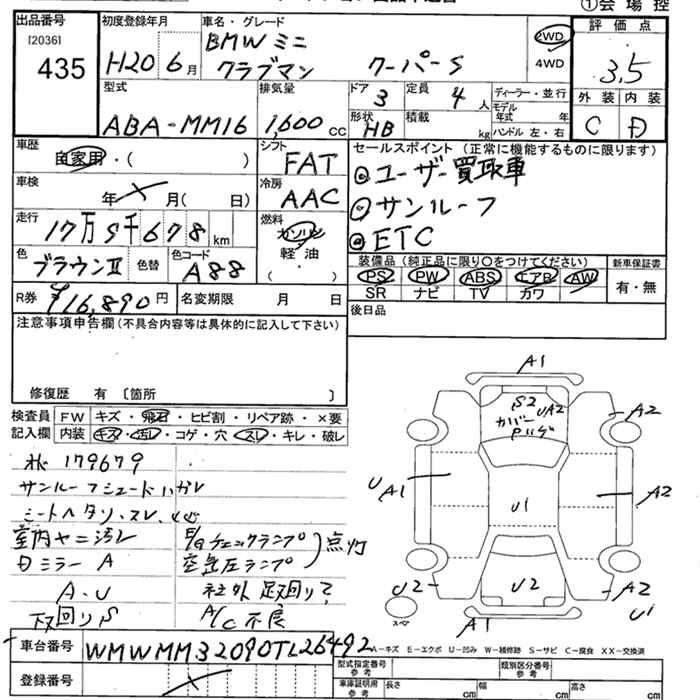 ①会 場 控
出品番号 [2036] 435
初度登録年月 H20年6月
車名・グレード BMW ミニ クラブマン クーパーS
2WD 4WD
評 価 点 3.5
外 装 C 内 装 D
型式 ABA-MM16
排気量 1,600cc
ドア 3 定員 4人
形状 HB 積載 kg
ディーラー・並行
モデル年式 年
ハンドル 左・右
車歴 自家用・( )
シフト FAT
車検 年 月( 日)
冷房 AAC
走行 17万9千678km
燃料 ガソリン 軽油 ( )
色 ブラウンⅡ 色替 色コード A88
R券 ¥16,890円 名変期限 月 日
セールスポイント (正常に機能するものに限ります)
◎ユーザー買取車
◎サンルーフ
◎ETC
装備品 (純正品に限り○をつけてください)
PS PW ABS エアB AW
SR ナビ TV カワ
新車保証書 有・無
後日品
注意事項申告欄(不具合内容等は具体的に記入して下さい)
修復歴 有 〔箇所 〕
検査員記入欄
FW キズ・飛石・ヒビ割・リペア跡・×要
内装 キズ・汚レ・コゲ・穴・スレ・キレ・破レ
メ 179679
サンルーフシェードハガレ
シートヘタリ、スレ
室内ヤニ汚レ
日ミラー A
A・U
下回りS
E/gチェックランプ
空気圧ランプ
点灯
社外 足回り?
A/C不良
A1
A2
S2
UA2
カバー
Pハゲ
U A1
U1
A2
U2
U2
A2
U1
A1
スペア
A-キズ E-エクボ U-凹み W-補修跡 S-サビ C-腐食 XX-交換済
車台番号 WMWMM32090TL26492
登録番号
型式指定番号 参考
類別区分番号 参考
車庫証明用 参考 長さ cm 幅 cm 高さ cm